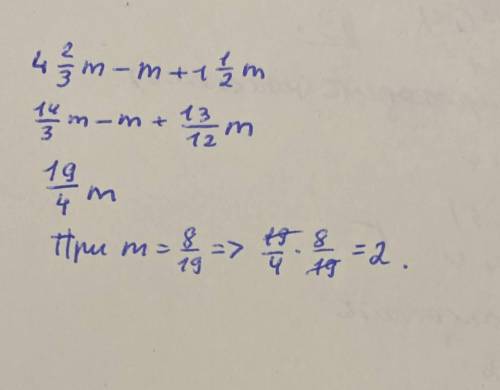 4 2/3 m − m + 1 1/2 m
14/3 m − m + 13/12 m
19/4 m
При m = 8/19 => 19/4 · 8/19 = 2.